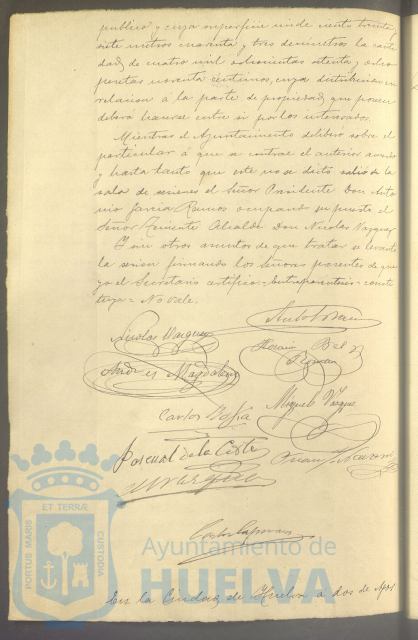 publico y cuya superficie mide ciento treinta y
siete metros cuarenta y tres decimetros la canti
dad de cuatro mil ochocientas setenta y ocho
pesetas noventa centimos, cuya distribucion en
relacion á la parte de propiedad que poseen
deberá hacerse entre si por los interesados.
Mientras el Ayuntamiento deliberó sobre el
particular á que se contrae el anterior
y hasta tanto que este no se dictó salió de la
sala de sesiones el Señor Presidente Don Anto
nio García Ramos ocupando su puesto el
Señor Teniente Alcalde Don Nicolas Vazquez
Y sin otros asuntos de que tratar se levantó
la sesion firmando los Señores presentes de que
yo el Secretario certifico = Entreparentesis =
= No vale.
Nicolas Vazquez
Horacio Bel
Roman
Andres Magdalena
Carlos
Miguel Vazquez
Pascual de la Corte
Juan
ET TERRÆ
PORTUS MARIS
CUSTODIA
Ayuntamiento de
HUELVA
En la Ciudad de Huelva a dos de Agos